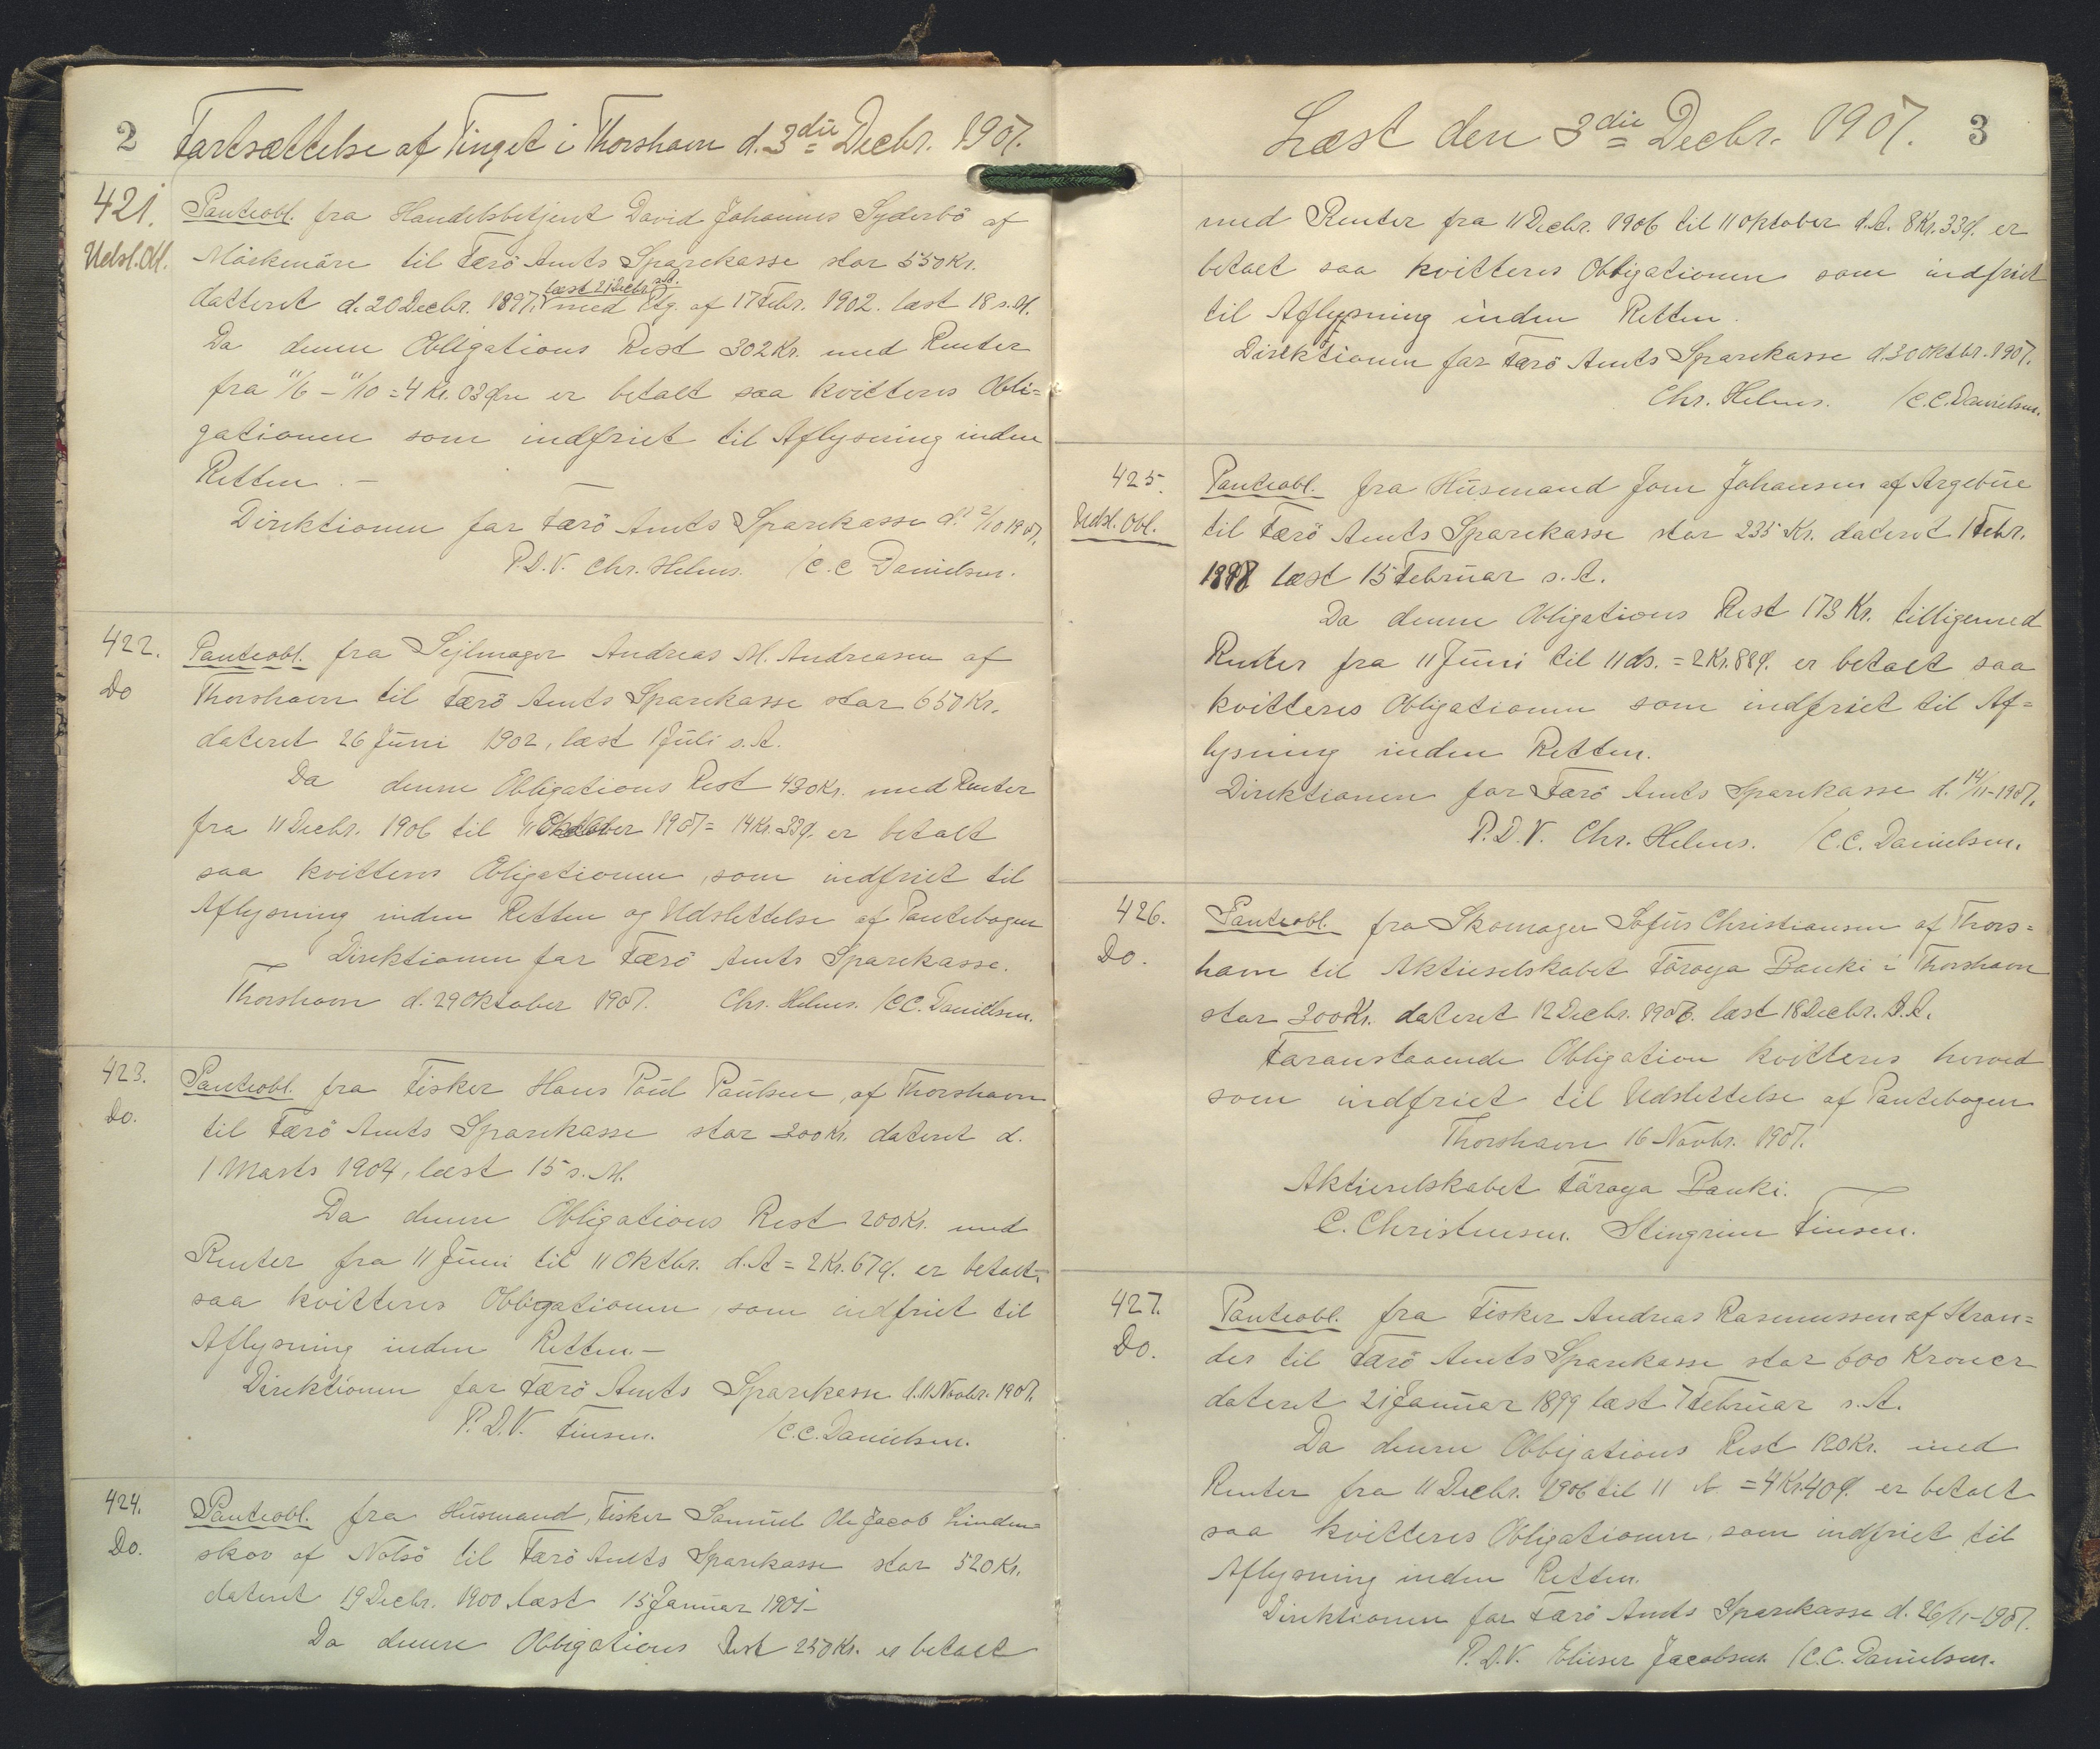 2 Fortsættelse af Tinget i Thorshavn d. 3die Decbr. 1907.
421. Panteobl. fra Handelsbetjent David Johannes Syderbö af
Udsl. Obl. til Færö Amts Sparekasse stor 550 Kr.
læst 21 Decbr. s.A.
datteret d. 20 Decbr. 1897, med Ptg. af 17 Febr. 1902. læst 18 s.M.
Da denne Obligations Rest 302 Kr. med Renter
fra 11/6 - 11/10 = 4 Kr. 03 Øre er betalt saa kvitteres Obli=
gationen som indfriet til Aflysning inden
Retten. -
Direktionen for Færö Amts Sparekasse d. 12/10 1907.
P.D.V. Chr. Helms. /C.C Danielsen.
422. Panteobl. fra Sejlmager Andreas M. Andreasen af
Do Thorshavn til Færö Amts Sparekasse stor 650 Kr.
dateret 26 Juni 1902, læst 1 Juli s.A.
Da denne Obligations Rest 430 Kr. med Renter
fra 11 Decbr. 1906 til 11 Oktober 1907 = 14 Kr. 33 Ø. er betalt
saa kvitteres Obligationen, som indfriet til
Aflysning inden Retten og Udslettelse af Pantebogen
Direktionen for Færö Amts Sparekasse.
Thorshavn d. 29 Oktober 1907. Chr. Helms. /C.C. Danielsen.
423. Panteobl. fra Fisker Hans Poul Poulsen, af Thorshavn
Do. til Færö Amts Sparekasse stor 300 Kr. dateret d.
1 Marts 1904, læst 15 s.M.
Da denne Obligations Rest 200 Kr. med
Renter fra 11 Juni til 11 Oktbr. d.A = 2 Kr. 67 Ø. er betalt,
saa kvitteres Obligationen, som indfriet til
Aflysning inden Retten. -
Direktionen for Færö Amts Sparekasse d. 11. Novbr. 1907.
P.D.V. Finsen. /C.C. Danielsen.
424. Panteobl. fra Husmand, Fisker Samuel Ole Jacob Linden=
Do. skov af Nolsö til Færö Amts Sparekasse stor 520 Kr.
dateret 19 Decbr. 1900 læst 15 Januar 1901 -
Da denne Obligations Rest 250 Kr. er betalt
Læst den 3die Decbr. 1907. 3
med Renter fra 11 Decbr. 1906 til 11 Oktober d.A. 8 Kr. 33 Ø. er
betalt saa kvitteres Obligationen som indfriet
til Aflysning inden Retten.
Direktionen for Færö Amts Sparekasse d. 30 Oktbr. 1907.
Chr. Helms. /C.C. Danielsen.
425. Panteobl. fra Husmand Joen Johansen af Argebue
Udsl. Obl. til Færö Amts Sparekasse stor 235 Kr. dateret 1 Febr.
1898 læst 15 Februar s.A.
Da denne Obligations Rest 173 Kr. tilligemed
Renter fra 11 Juni til 11 ds. = 2 Kr. 88 Ø. er betalt saa
kvitteres Obligationen som indfriet til Af=
lysning inden Retten.
Direktionen for Færö Amts Sparekasse d. 14/11-1907.
P.D.V. Chr. Helms. /C.C. Danielsen.
426. Panteobl. fra Skomager Sofus Christiansen af Thors=
Do. havn til Aktieselskabet Föroya Banki i Thorshavn
stor 300 Kr. dateret 12 Decbr. 1906. læst 18 Decbr. s.A.
Foranstaaende Obligation kvitteres herved
som indfriet til Udslettelse af Pantebogen
Thorshavn 16 Novbr. 1907.
Aktieselskabet Föroya Banki.
C. Christensen. Steingrim Finsen.
427. Panteobl. fra Fisker Andreas Rasmussen af Stran=
Do. der til Færö Amts Sparekasse stor 600 Kroner
dateret 21 Januar 1899 læst 7 Februar s.A.
Da denne Obligations Rest 120 Kr. med
Renter fra 11 Decbr. 1906 til 11 = 4 Kr. 40 Ø. er betalt
saa kvitteres Obligationen, som indfriet til
Aflysning inden Retten.
Direktionen for Færö Amts Sparekasse d. 26/11-1907.
P.D.V. Elieser Jacobsen /C.C. Danielsen.